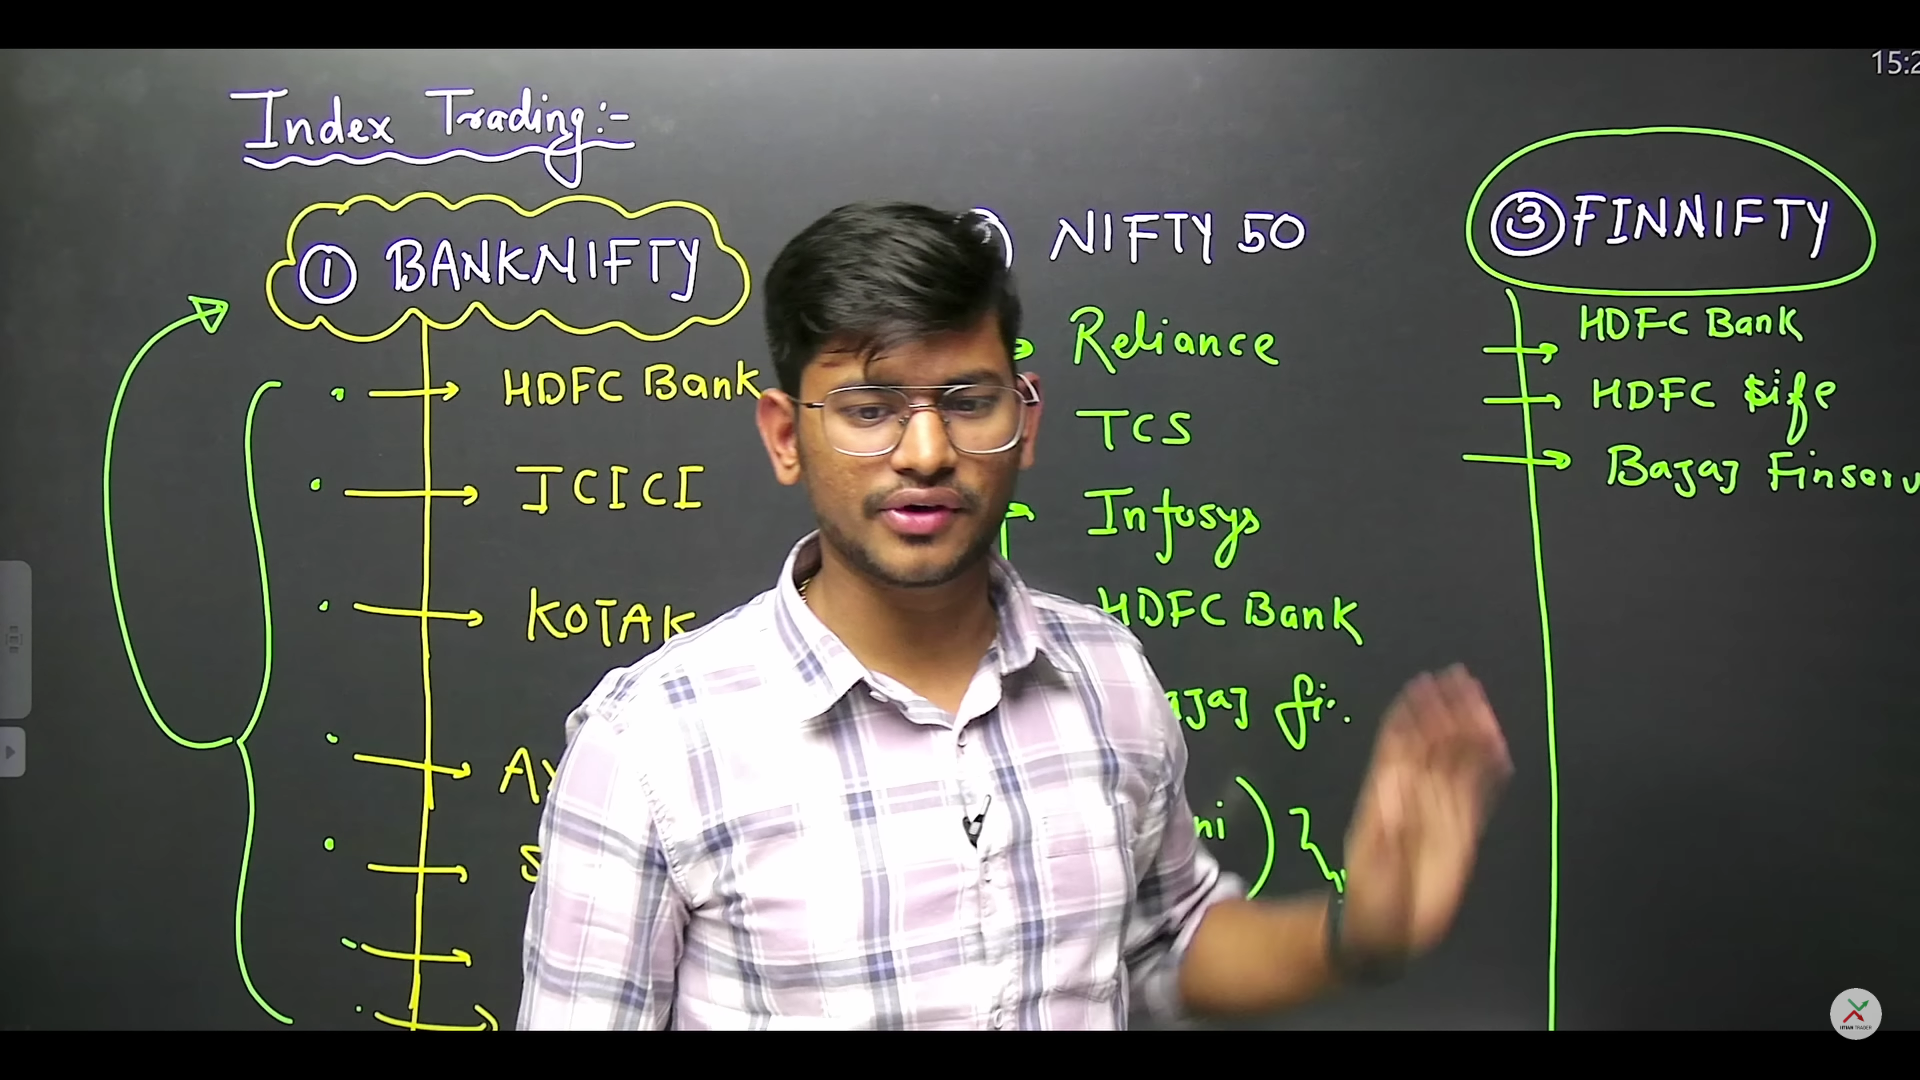 15:2
Index Trading:-
① BANKNIFTY
HDFC Bank
ICICI
KOTAK
NIFTY 50
Reliance
TCS
Infosys
HDFC Bank
fi.
③ FINNIFTY
HDFC Bank
HDFC Life
Bajaj Finserv
IITIAN TRADER